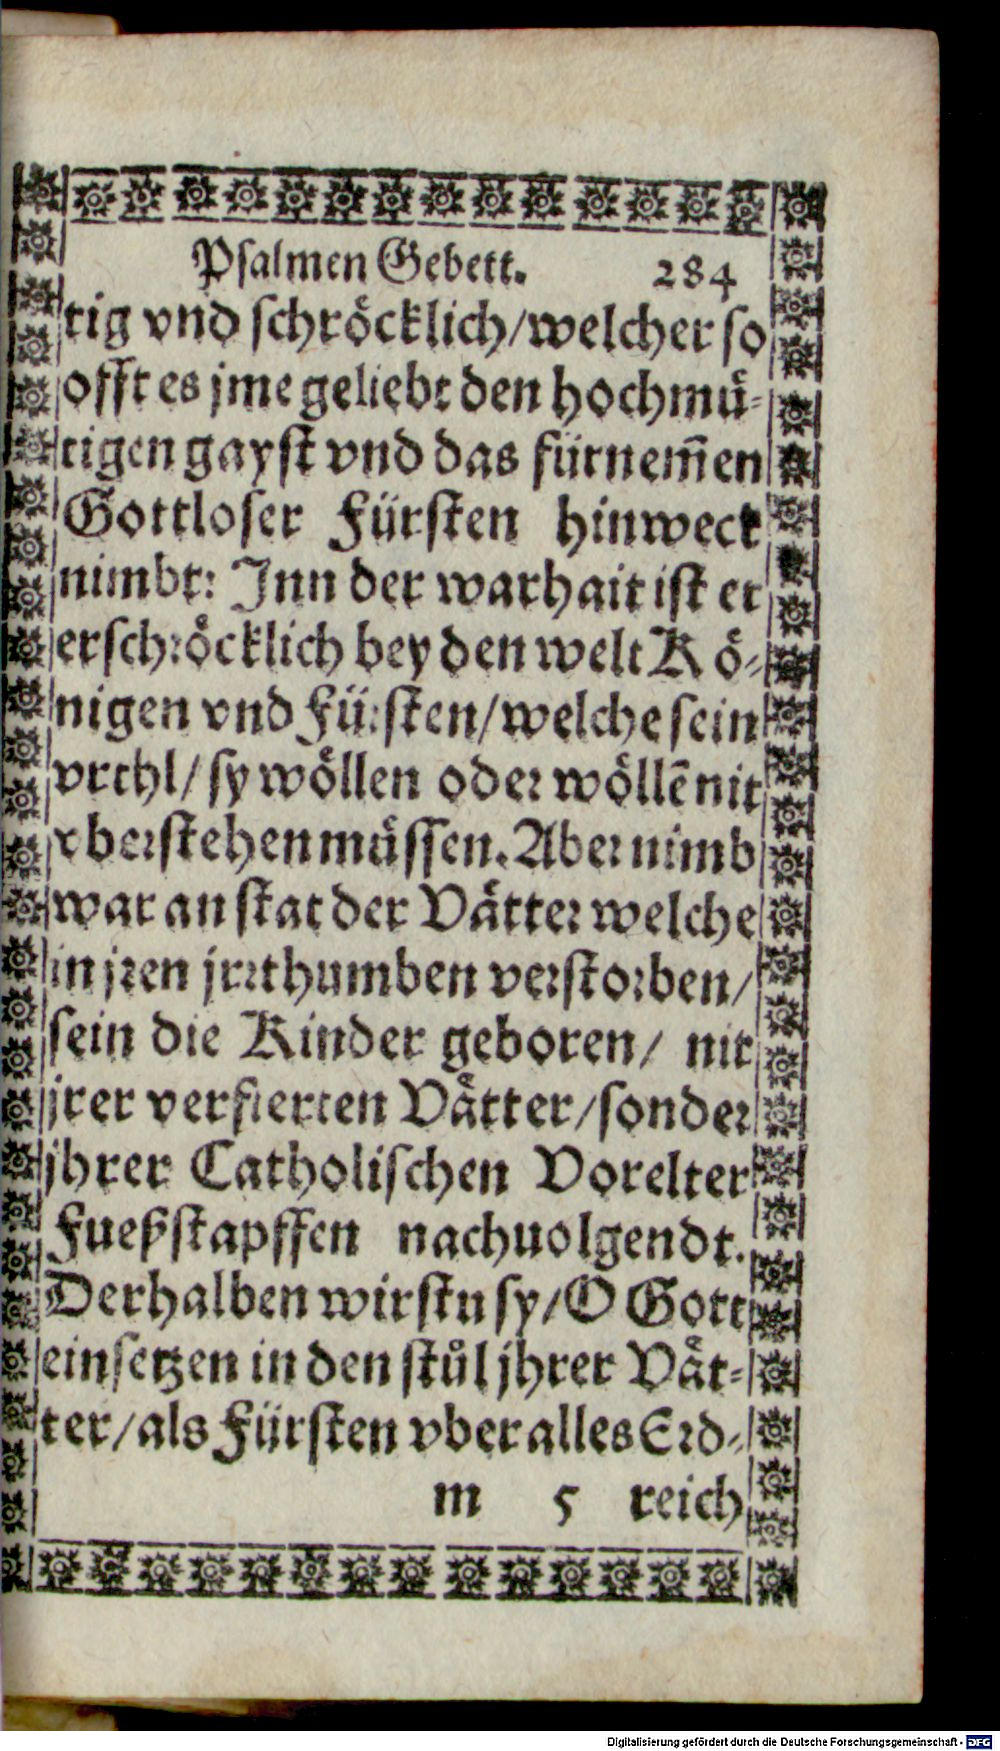 Psalmen Gebett. 284
tig vnd schröcklich/welcher so
offt es jme geliebt den hochmuͤ-
tigen gayst vnd das fürnem̄en
Gottloser Fürsten hinweck
nimbt: Inn der warhait ist er
erschröcklich bey den welt Koͤ-
nigen vnd Fürsten/welche sein
vrthl/ sy woͤllen oder woͤllē nit
vberstehen muͤssen. Aber nimb
war an stat der Vaͤtter welche
in jren jrrthumben verstorben/
sein die Kinder geboren/ nit
jrer verfierten Vaͤtter/sonder
jhrer Catholischen Vorelter
Fueßstapffen nachuolgendt.
Derhalben wirstu sy/O Gott
einsetzen in den stůl jhrer Vaͤt-
ter/als Fürsten vber alles Erd-
m 5 reich
Digitalisierung gefördert durch die Deutsche Forschungsgemeinschaft - DFG